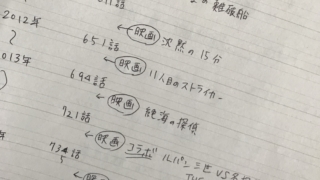 の雑版船
2012年
← 映画 沈黙の15分
651話
← 映画 11人目のストライカー
2013年
694話
← 映画 絶海の探偵
721話
← 映画 コラボ ルパン三世 VS
734話
5
← 映画